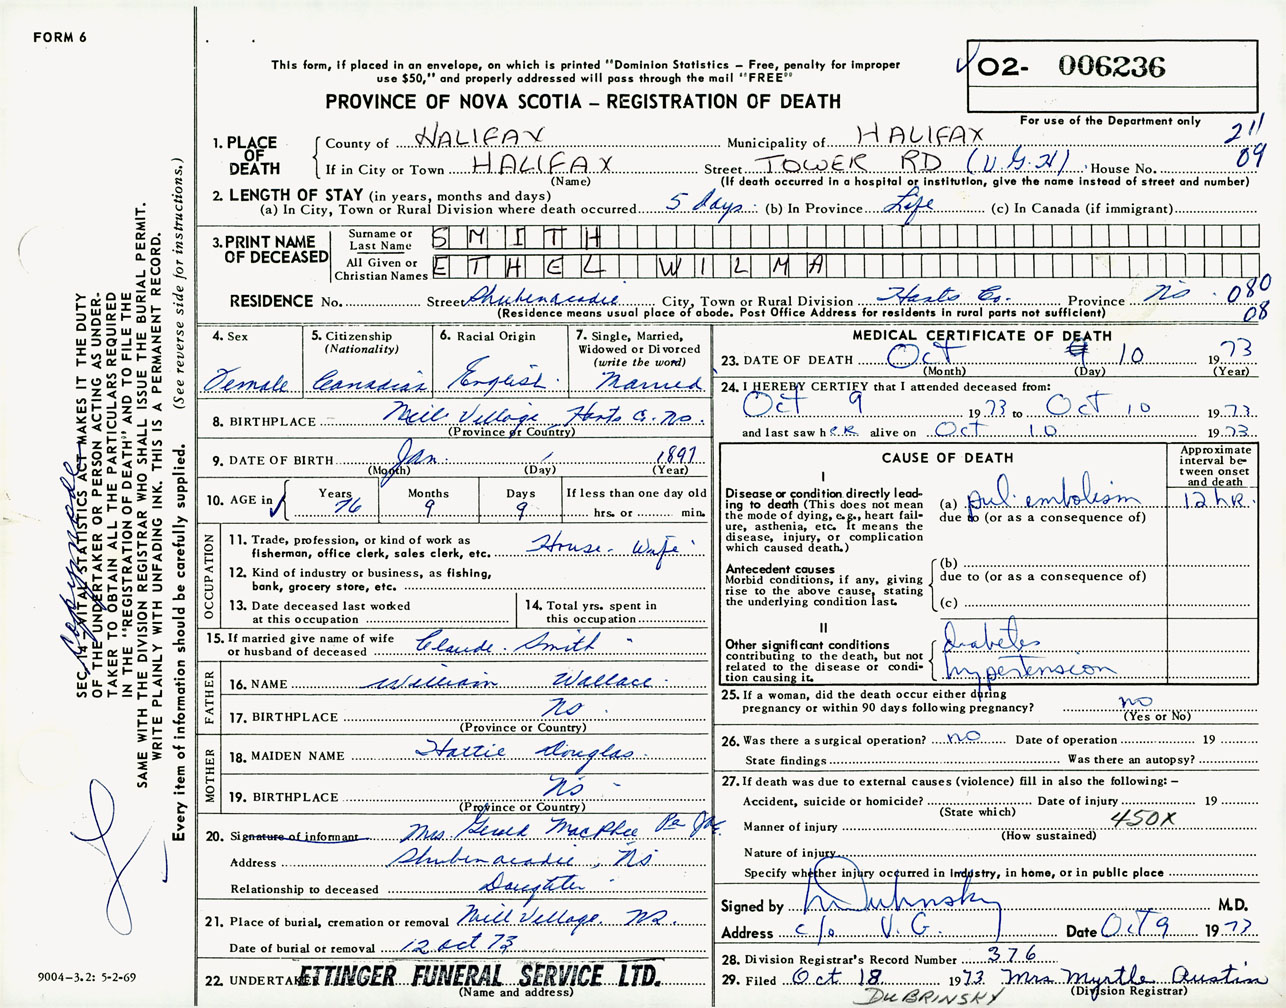 FORM 6
This form, if placed in an envelope, on which is printed "Dominion Statistics – Free, penalty for improper
use $50," and properly addressed will pass through the mail "FREE"
PROVINCE OF NOVA SCOTIA – REGISTRATION OF DEATH
O2- 006236
For use of the Department only
211
09
1. PLACE OF DEATH
County of HALIFAX Municipality of HALIFAX
If in City or Town HALIFAX Street TOWER RD (V.G.H) House No.
(Name) (If death occurred in a hospital or institution, give the name instead of street and number)
2. LENGTH OF STAY (in years, months and days)
(a) In City, Town or Rural Division where death occurred 5 days (b) In Province Life (c) In Canada (if immigrant)
3. PRINT NAME OF DECEASED
Surname or Last Name SMITH
All Given or Christian Names ETHEL WILMA
RESIDENCE No. Street Shubenacadie City, Town or Rural Division Hants Co. Province NS 080
(Residence means usual place of abode. Post Office Address for residents in rural parts not sufficient) 08
4. Sex Female
5. Citizenship (Nationality) Canadian
6. Racial Origin English
7. Single, Married, Widowed or Divorced (write the word) Married
8. BIRTHPLACE Mill Village, Hants Co. NS.
(Province or Country)
9. DATE OF BIRTH Jan 1 1897
(Month) (Day) (Year)
10. AGE in Years 76 Months 9 Days 9 If less than one day old hrs. or min.
OCCUPATION
11. Trade, profession, or kind of work as fisherman, office clerk, sales clerk, etc. House-Wife
12. Kind of industry or business, as fishing, bank, grocery store, etc.
13. Date deceased last worked at this occupation
14. Total yrs. spent in this occupation
15. If married give name of wife or husband of deceased Claude Smith
FATHER
16. NAME William Wallace
17. BIRTHPLACE NS
(Province or Country)
MOTHER
18. MAIDEN NAME Hattie Douglas
19. BIRTHPLACE NS
(Province or Country)
20. Signature of informant Mrs. Gerald MacPhee Per
Address Shubenacadie, NS
Relationship to deceased Daughter
21. Place of burial, cremation or removal Mill Village. NS.
Date of burial or removal 12 Oct 73
22. UNDERTAKER ETTINGER FUNERAL SERVICE LTD.
(Name and address)
MEDICAL CERTIFICATE OF DEATH
23. DATE OF DEATH Oct 10 1973
(Month) (Day) (Year)
24. I HEREBY CERTIFY that I attended deceased from:
Oct 9 1973 to Oct 10 1973
and last saw her alive on Oct 10 1973
CAUSE OF DEATH
Approximate interval between onset and death
I
Disease or condition directly leading to death (This does not mean the mode of dying, e.g., heart failure, asthenia, etc. It means the disease, injury, or complication which caused death.)
(a) pul. embolism 12 hr.
due to (or as a consequence of)
Antecedent causes
Morbid conditions, if any, giving rise to the above cause, stating the underlying condition last.
(b)
due to (or as a consequence of)
(c)
II
Other significant conditions contributing to the death, but not related to the disease or condition causing it.
diabetes
hypertension
25. If a woman, did the death occur either during pregnancy or within 90 days following pregnancy? no
(Yes or No)
26. Was there a surgical operation? no Date of operation 19
State findings Was there an autopsy?
27. If death was due to external causes (violence) fill in also the following:–
Accident, suicide or homicide? Date of injury 19
(State which)
Manner of injury 450X
(How sustained)
Nature of injury
Specify whether injury occurred in Industry, in home, or in public place
Signed by Dubrinsky M.D.
Address c/o V.G. Date Oct 9 1973
28. Division Registrar's Record Number 376
29. Filed Oct 18 1973 Mrs Myrtle Austin
(Division Registrar)
DUBRINSKY
SEC. 14 VITAL STATISTICS ACT MAKES IT THE DUTY
OF THE UNDERTAKER OR PERSON ACTING AS UNDER-
TAKER TO OBTAIN ALL THE PARTICULARS REQUIRED
IN THE "REGISTRATION OF DEATH" AND TO FILE THE
SAME WITH THE DIVISION REGISTRAR WHO SHALL ISSUE THE BURIAL PERMIT.
WRITE PLAINLY WITH UNFADING INK. THIS IS A PERMANENT RECORD.
Every item of information should be carefully supplied. (See reverse side for instructions.)
9004-3.2: 5-2-69